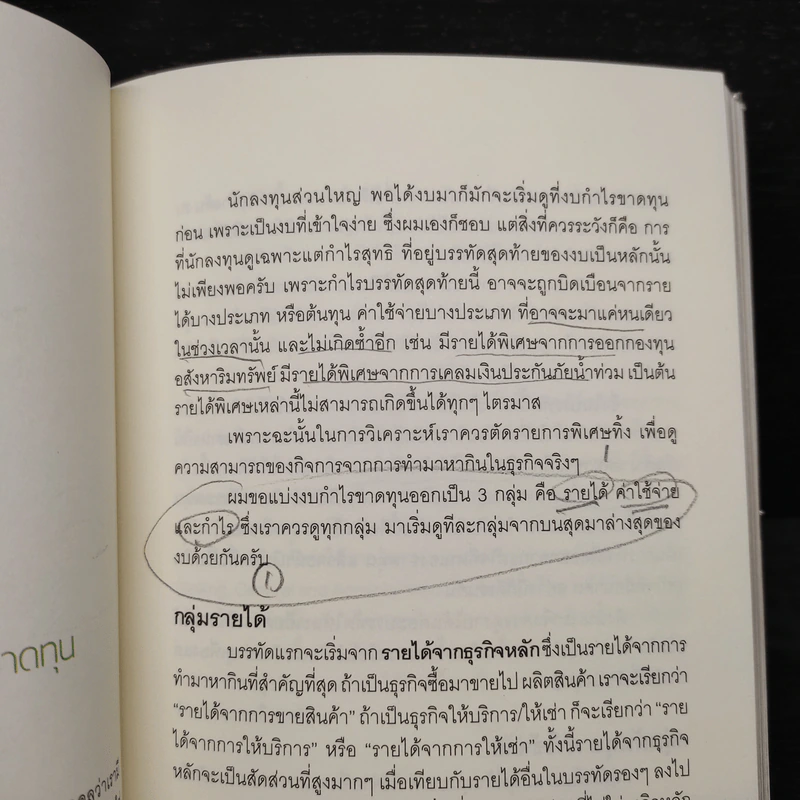 นักลงทุนส่วนใหญ่ พอได้งบมาก็มักจะเริ่มดูที่งบกำไรขาดทุน
ก่อน เพราะเป็นงบที่เข้าใจง่าย ซึ่งผมเองก็ชอบ แต่สิ่งที่ควรระวังก็คือ การ
ที่นักลงทุนดูเฉพาะแต่กำไรสุทธิ ที่อยู่บรรทัดสุดท้ายของงบเป็นหลักนั้น
ไม่เพียงพอครับ เพราะกำไรบรรทัดสุดท้ายนี้ อาจจะถูกบิดเบือนจากราย
ได้บางประเภท หรือต้นทุน ค่าใช้จ่ายบางประเภท ที่อาจจะมาแค่หนเดียว
ในช่วงเวลานั้น และไม่เกิดซ้ำอีก เช่น มีรายได้พิเศษจากการออกกองทุน
อสังหาริมทรัพย์ มีรายได้พิเศษจากการเคลมเงินประกันภัยน้ำท่วม เป็นต้น
รายได้พิเศษเหล่านี้ไม่สามารถเกิดขึ้นได้ทุกๆ ไตรมาส
เพราะฉะนั้นในการวิเคราะห์เราควรตัดรายการพิเศษทิ้ง เพื่อดู
ความสามารถของกิจการจากการทำมาหากินในธุรกิจจริงๆ
ผมขอแบ่งงบกำไรขาดทุนออกเป็น 3 กลุ่ม คือ รายได้ ค่าใช้จ่าย
และกำไร ซึ่งเราควรดูทุกกลุ่ม มาเริ่มดูทีละกลุ่มจากบนสุดมาล่างสุดของ
งบด้วยกันครับ
1
กลุ่มรายได้
บรรทัดแรกจะเริ่มจาก รายได้จากธุรกิจหลักซึ่งเป็นรายได้จากการ
ทำมาหากินที่สำคัญที่สุด ถ้าเป็นธุรกิจซื้อมาขายไป ผลิตสินค้า เราจะเรียกว่า
“รายได้จากการขายสินค้า” ถ้าเป็นธุรกิจให้บริการ/ให้เช่า ก็จะเรียกว่า “ราย
ได้จากการให้บริการ” หรือ “รายได้จากการให้เช่า” ทั้งนี้รายได้จากธุรกิจ
หลักจะเป็นสัดส่วนที่สูงมากๆ เมื่อเทียบกับรายได้อื่นในบรรทัดรองๆ ลงไป
าดทุน